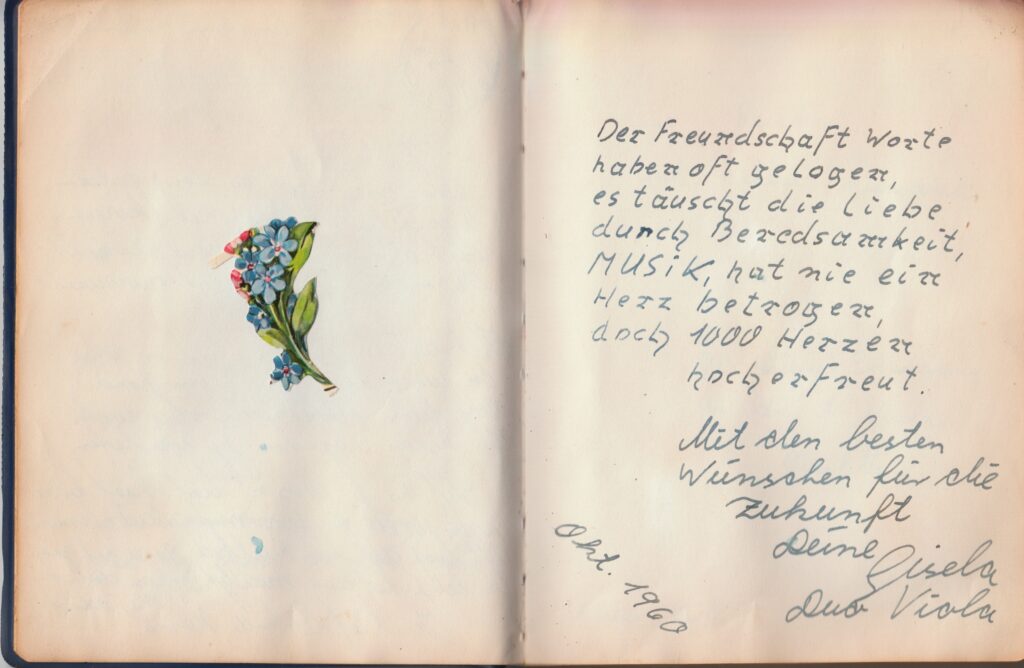 Der Freundschaft Worte
haben oft gelogen,
es täuscht die Liebe
durch Beredsamkeit,
MUSiK, hat nie ein
Herz betrogen,
doch 1000 Herzen
hocherfreut.
Mit den besten
Wünschen für die
Zukunft
Deine Gisela
Duo Viola
Okt. 1960